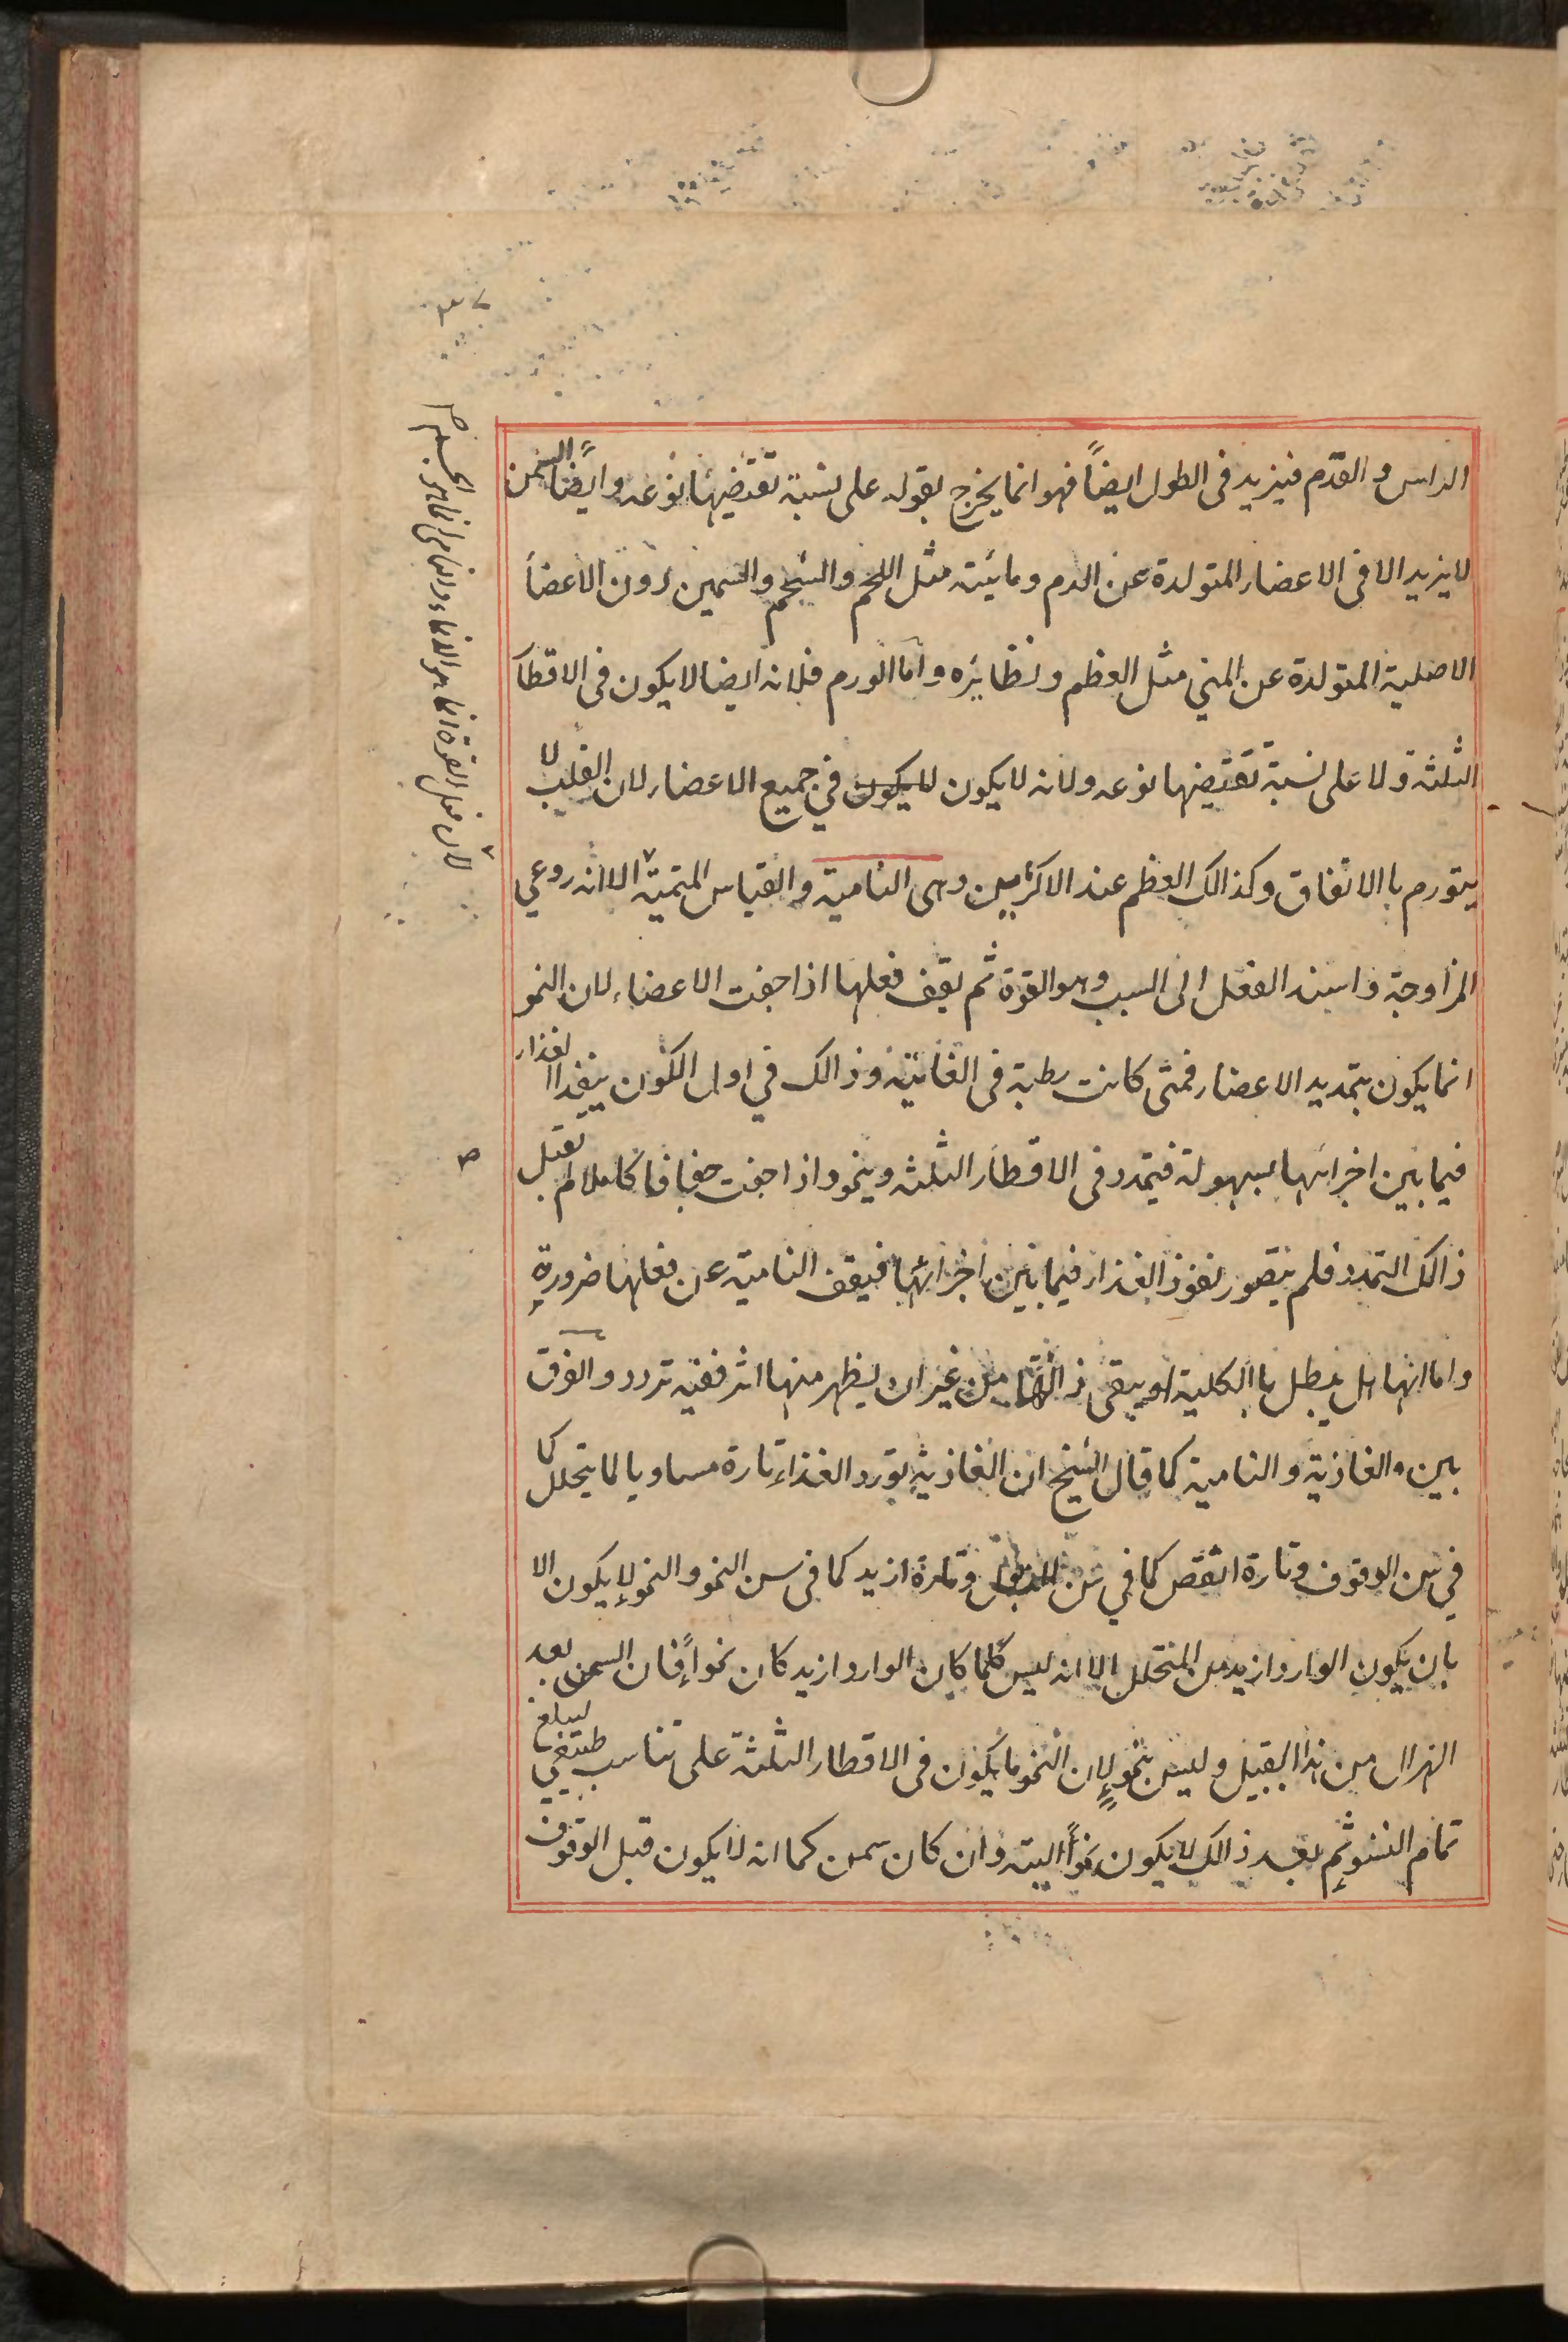 الراس و القدم فيزيد فى الطول ايضاً فهو انما يخرج بقوله على نسبة تقتضيها نوعه و ايضاً السمن
لا يزيد الا فى الاعضاء المتولدة عن الدم و مائيته مثل اللحم و الشحم و السمين دون الاعضا
الاصلية المتولدة عن المني مثل العظم و نظايره و اما الورم فلانه ايضا لا يكون فى الاقطا
الثلثة و لا على نسبة تقتضيها نوعه و لانه لا يكون لا يكون في جميع الاعضاء لان القلب لا
يتورم باالاتفاق و كذالك العظم عند الاكثرين وهى النامية و القياس المنمية الا انه روعي
المزاوجة و اسند الفعل الى السبب وهو القوة ثم يقف فعلها اذا جفت الاعضاء لان النمو
انما يكون بتمديد الاعضاء فمتى كانت رطبة فى الغاية و ذالك في اول الكون ينفذ الغذاء
فيما بين اجزائها بسهولة فيتمدد فى الاقطار الثلثه و ينمو و اذا جفت جفافا كاملا لم تقبل
ذالك التمدد فلم يتصور نفوذ الغذاء فيما بين اجزائها فيقف النامية عن فعلها ضرورة
و اما انها هل يبطل باالكلية او يبقى ذاتها من غير ان يظهر منها اثر ففيه تردد و الفرق
بين و الغاذية و النامية كما قال الشيخ ان الغاذية تورد الغذاء تارة مساويا لما يتحلل كما
في سن الوقوف و تارة انقص كما في سن الذبول و تارة ازيد كما فى سن النمو و النمو لا يكون الا
بان يكون الوارد ازيد من المتحلل الا انه ليس كلما كان الوارد ازيد كان نمواً فان السمن بعد
الهزال من هذا القبيل و ليس بنمو لان النمو ما يكون فى الاقطار الثلثة على تناسب طبيعي ليبلغ
تمام النشو ثم بعد ذالك لا يكون نمواً البته و ان كان سمن كما انه لا يكون قبل الوقوف
لان فعل القوة انما هو الغذاء و النامى انما هو الجسم